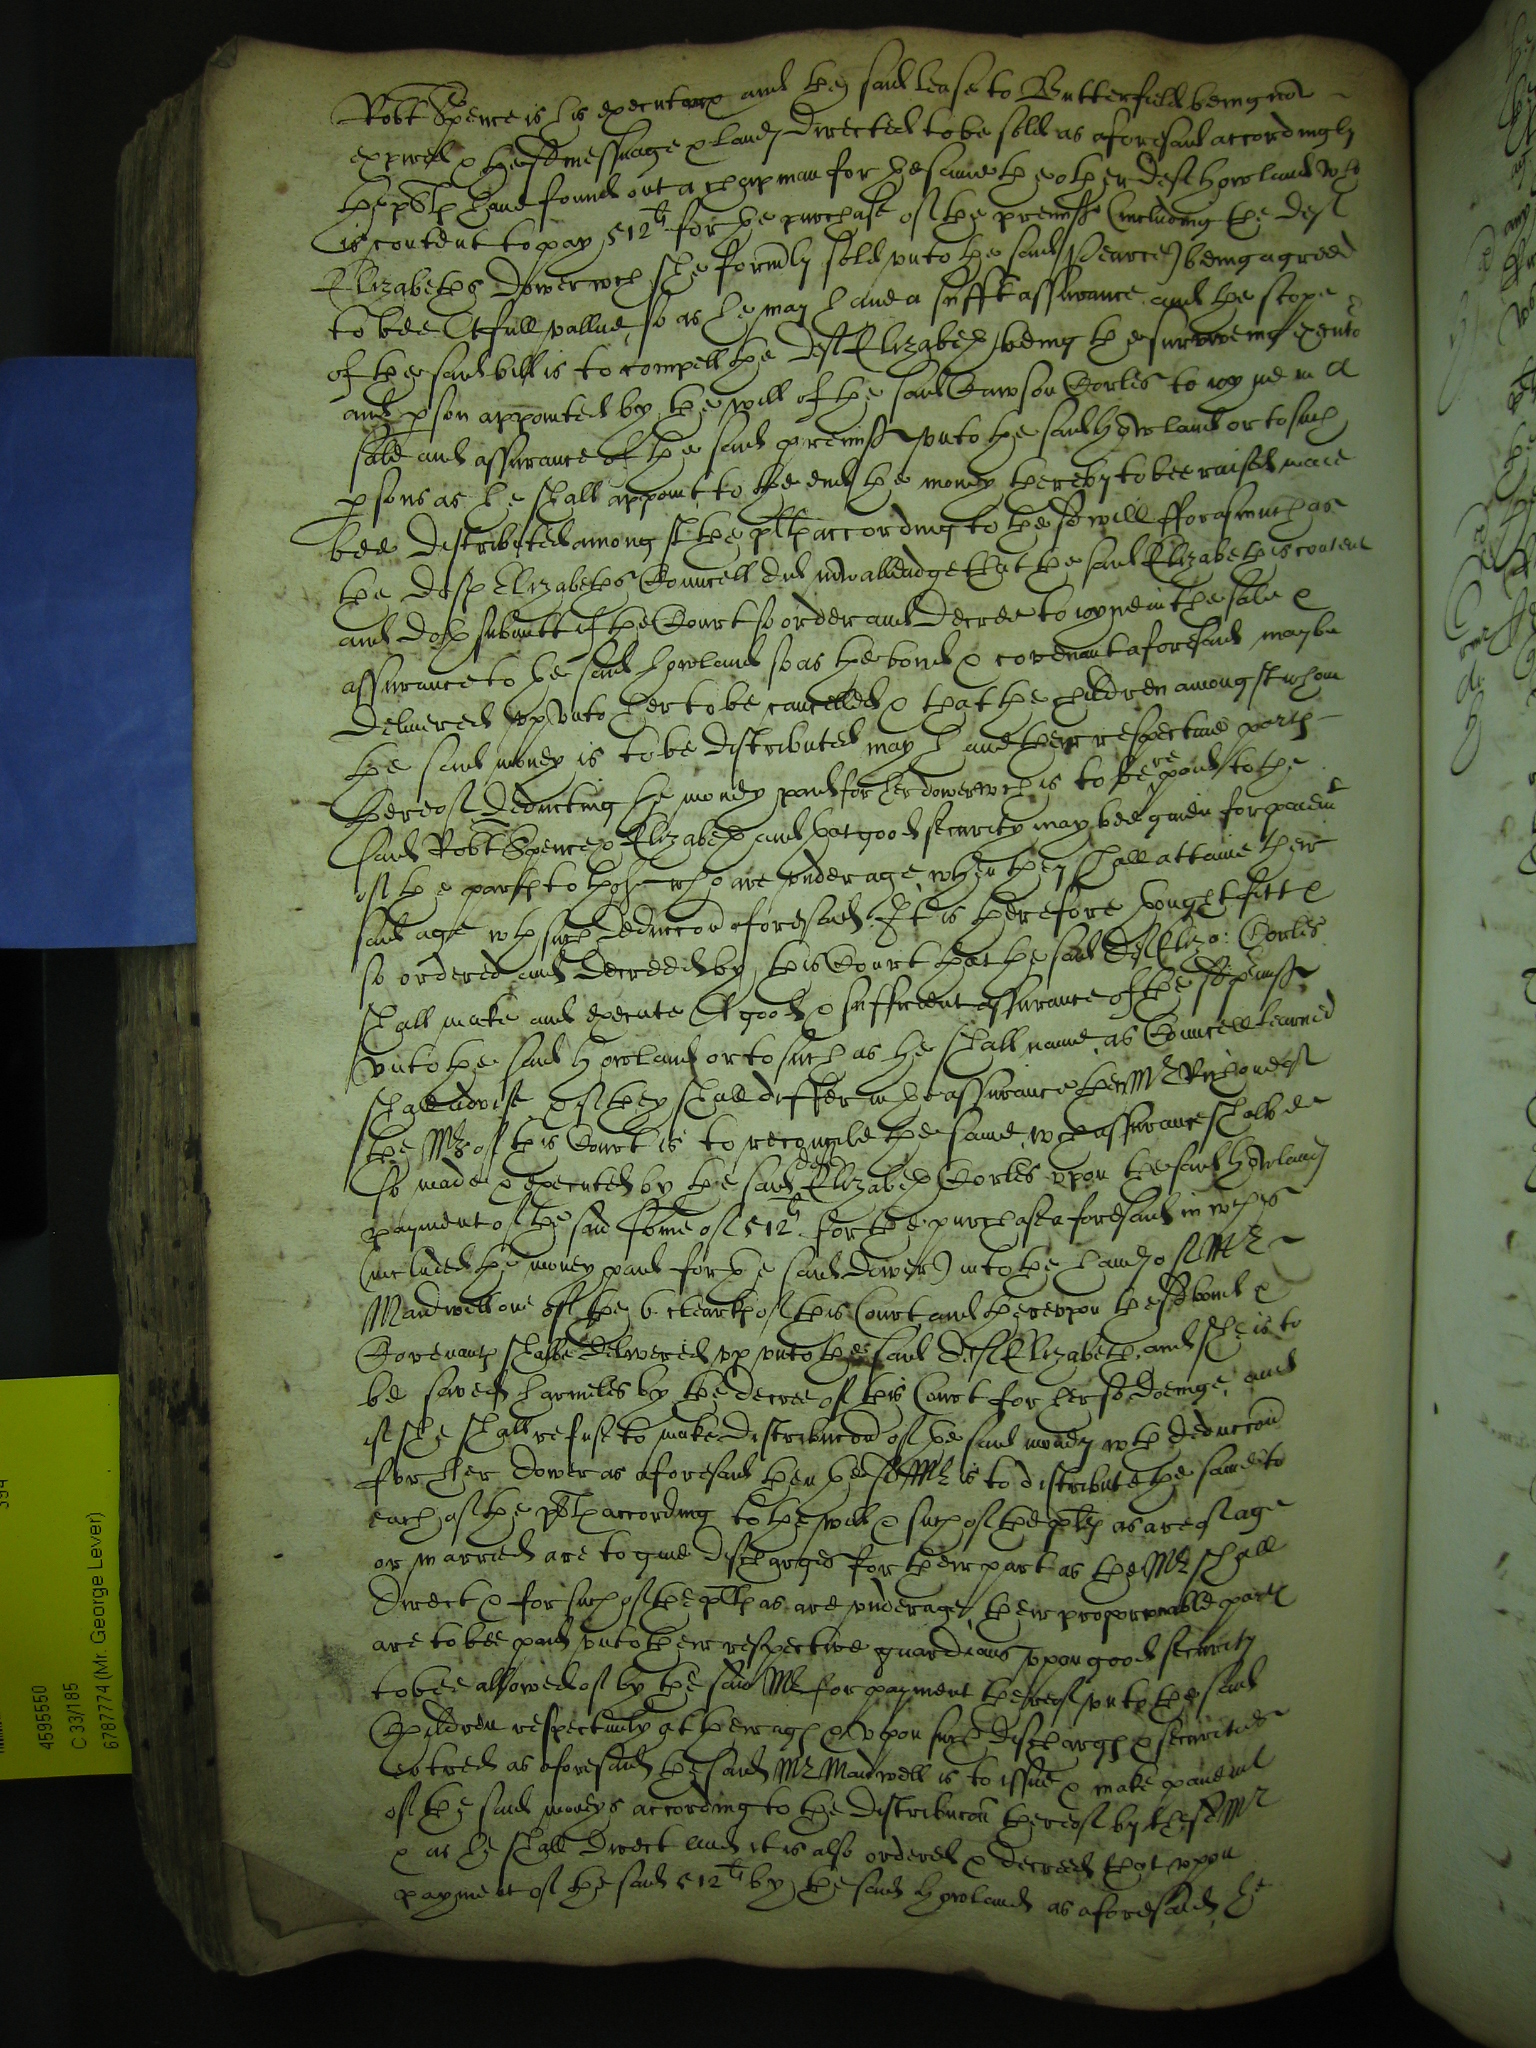 Robt Spence is his executor and the said lease to Butterfield being now
expired & the sd messuage & lands directed to be sold as aforesaid accordingly
the plts have found out a chapman for the same the other deft Howland who
is content to pay 512li for the purchase of the premiss (including the deft
Elizabeths dower wch she formly sold unto the said Pearce) being agreed
to bee the full vallue, so as he may have a sufft assurance and the scope
of the said bill is to compell the deft Elizabeth being the surviveing executo
and pson appointed by the will of the said Dawson Corles to ioyne in a
sale and assurance of the said premiss unto the said Howland or to such
psons as he shall appoint to the end the money thereby to bee raised maie
bee distributed amongst the plts according to the sd will fforasmuch as
the deft Elizabeths Councell did now alleadge that the said Elizabeth is content
and doth submitt if the Court so order and decree to ioyne in the sale &
assurance to the said Howland so as the bond & covenant aforesaid may be
delivered up unto her to be cancelled & that the children amongst whom
the said money is to be distributed may have their respective parts
thereof deducting the money paid for her dower wch is to be repaid to the
said Robt Spence & Elizabeth and that good security may bee given for paiemt
of the parts to those who are under age when they shall attaine their
said age wth such deduccon aforesaid. It is therefore thought fitt &
so ordered and decreed by this Court that the said deft Eliza: Corles
shall make and execute a good & sufficient assurance of the sd premiss
unto the said Howland or to such as he shall name, as Councell learned
shall advise & if they shall differ in the assurance then Mr
the Mrs of this Court is to reconcile the same, wch assurance shalbe
so made & executed by the said deft Elizabeth Corles upon the said Howlands
payment of the said some of 512li for the purchase aforesaid in wch is
(included the money paid for the said dower) into the hands of Mr
Maidwell one of the 6 clearks of this Court and thereupon the sd bond &
Covenants shalbe delivered up unto the said deft Elizabeth, and she is to
be saved harmeles by the decree of this Court for her so doeinge, and
if she shall refuse to make distribucon of the said money wth deduccon
for her dower as aforesaid then the sd Mr is to distribute the same to
each of the plts according to the will & such of the plts as are of age
or married are to give discharges for their part as the Mr shall
direct & for such of the plts as are under age, their proporconable parts
are to bee paid unto their respective guardians upon good security
to bee allowed of by the said Mr for payment thereof unto the said
Children respectively at their ages & upon such discharges & securities
entred as aforesaid the said Mr Maidwell is to issue & make paiemt
of the said moneys according to the distribucon thereof by the sd Mr
& as he shall direct And it is also ordered & decreed that upon
payment of the said 512li by the said Howland as aforesaid, he
4595550
C 33/185
6787774 (Mr. George Lever)